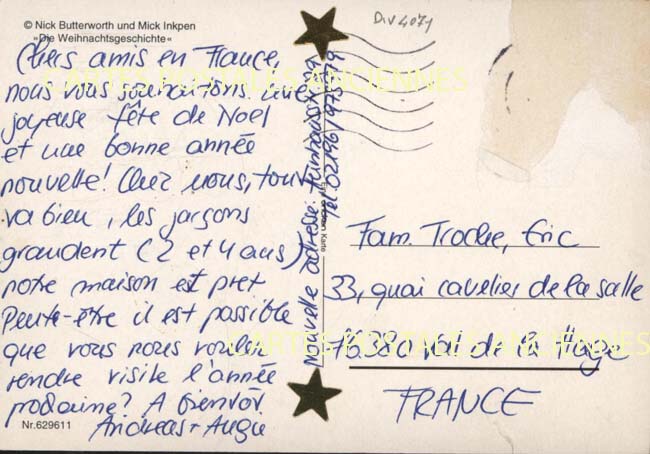 © Nick Butterworth und Mick Inkpen
»Die Weihnachtsgeschichte«
Div 4071
Chers amis en France,
nous vous souhaitons une
joyeuse fête de Noel
et une bonne année
nouvelle! Chez nous, tout
va bien, les garçons
grandent (2 et 4 ans)
notre maison est pret
Peute-être il est possible
que vous nous voulez
rendre visite l'année
prochaine? A bientôt
Andreas +
Nr.629611
Nouvelle adresse:
Tel. 02196/973579
Fam. Troche, Eric
33, quai cavelier de la salle
de la Haye
FRANCE
CARTES POSTALES ANCIENNES
CARTES POSTALES ANCIENNES